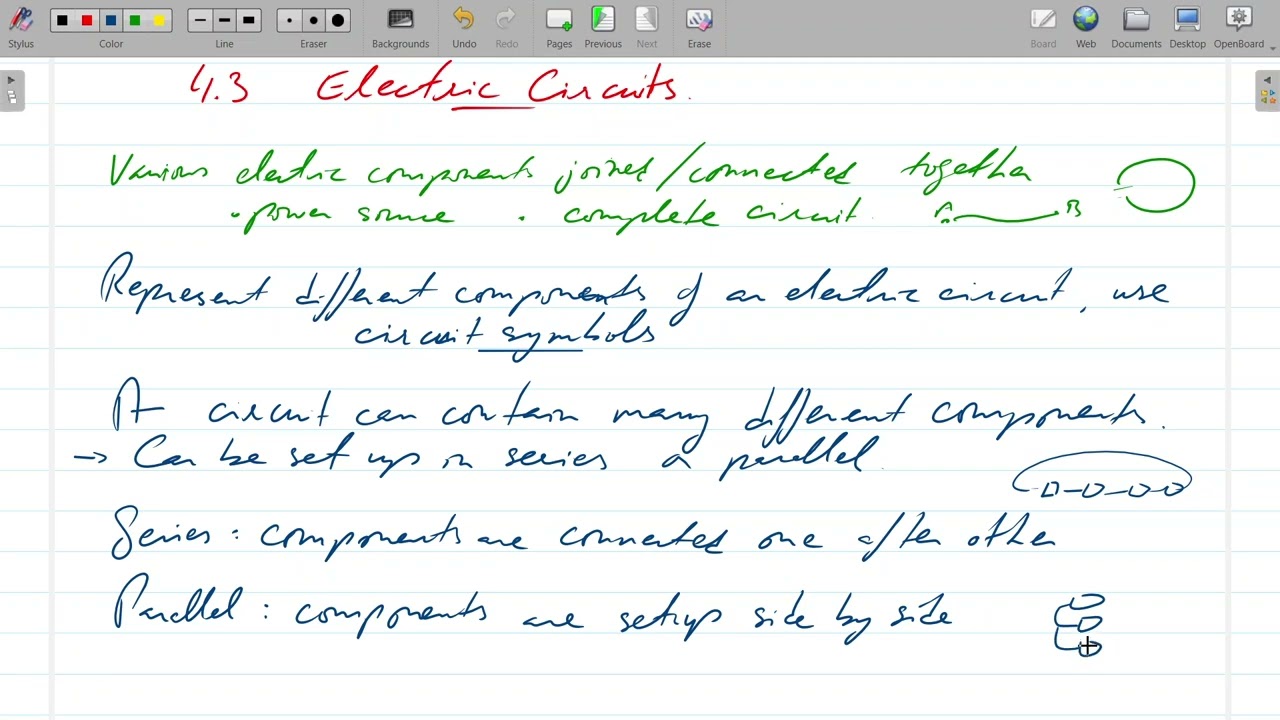 Stylus Color Line Eraser Backgrounds Undo Redo Pages Previous Next Erase Board Web Documents Desktop OpenBoard
4.3 Electric Circuits.
Various electric components joined/connected together
• power source • complete circuit. A B
Represent different components of an electric circuit, use
circuit symbols
A circuit can contain many different components.
→ Can be set up in series or parallel.
Series: components are connected one after other
Parallel: components are setup side by side